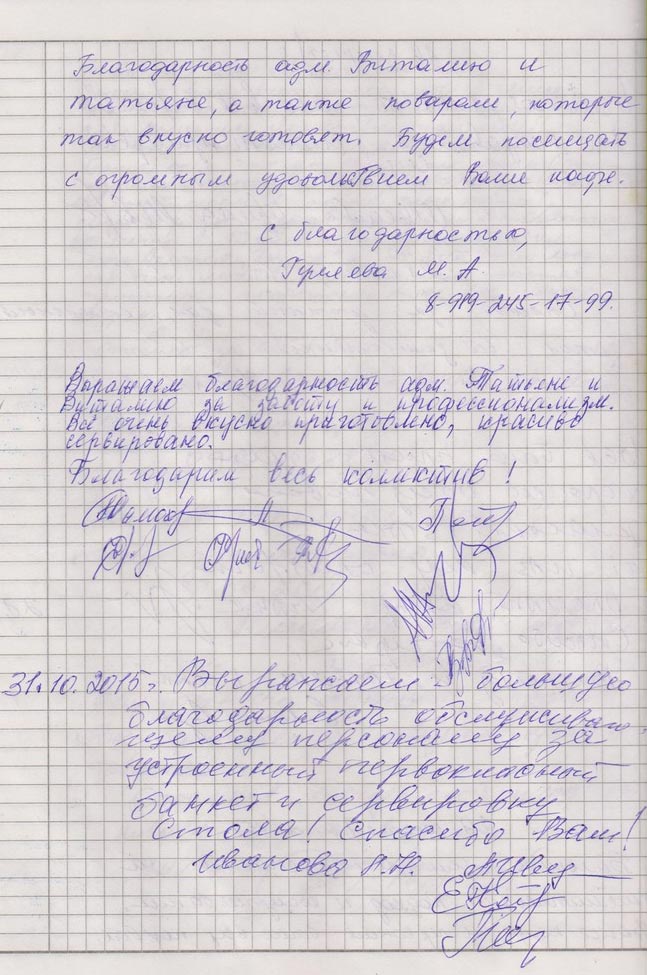 Благодарность адм. Виталию и
татьяне, а также поварам, которые
так вкусно готовят. Будем посещать
с огромным удовольТвием Ваше кафе.
С благодарностью,
М. А.
8-919-245-17-99.
Выражаем благодарность адм. Татьяне и
Виталию за заботу и профессионализм.
Всё очень вкусно приготовлено, красиво
сервировано.
Благодарим весь коллктив!
31.10.2015г. Выражаем большую
благодарность обслуживаю-
щему персоналу за
устроенный первокласный
банкет и сервировку
стола! Спасибо Вам!
Иванова Л.Н.